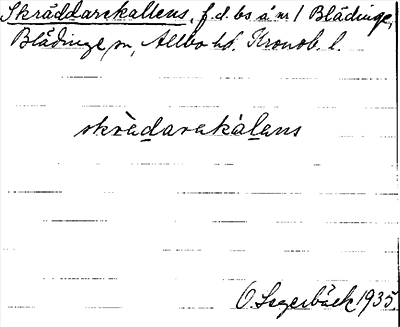 Skräddarekallens, f.d. bs å nr 1 Blädinge,
Blädinge sn, Allbo hd. Kronob. l.
skrädarekàlens
O. Segerbäck 1935.